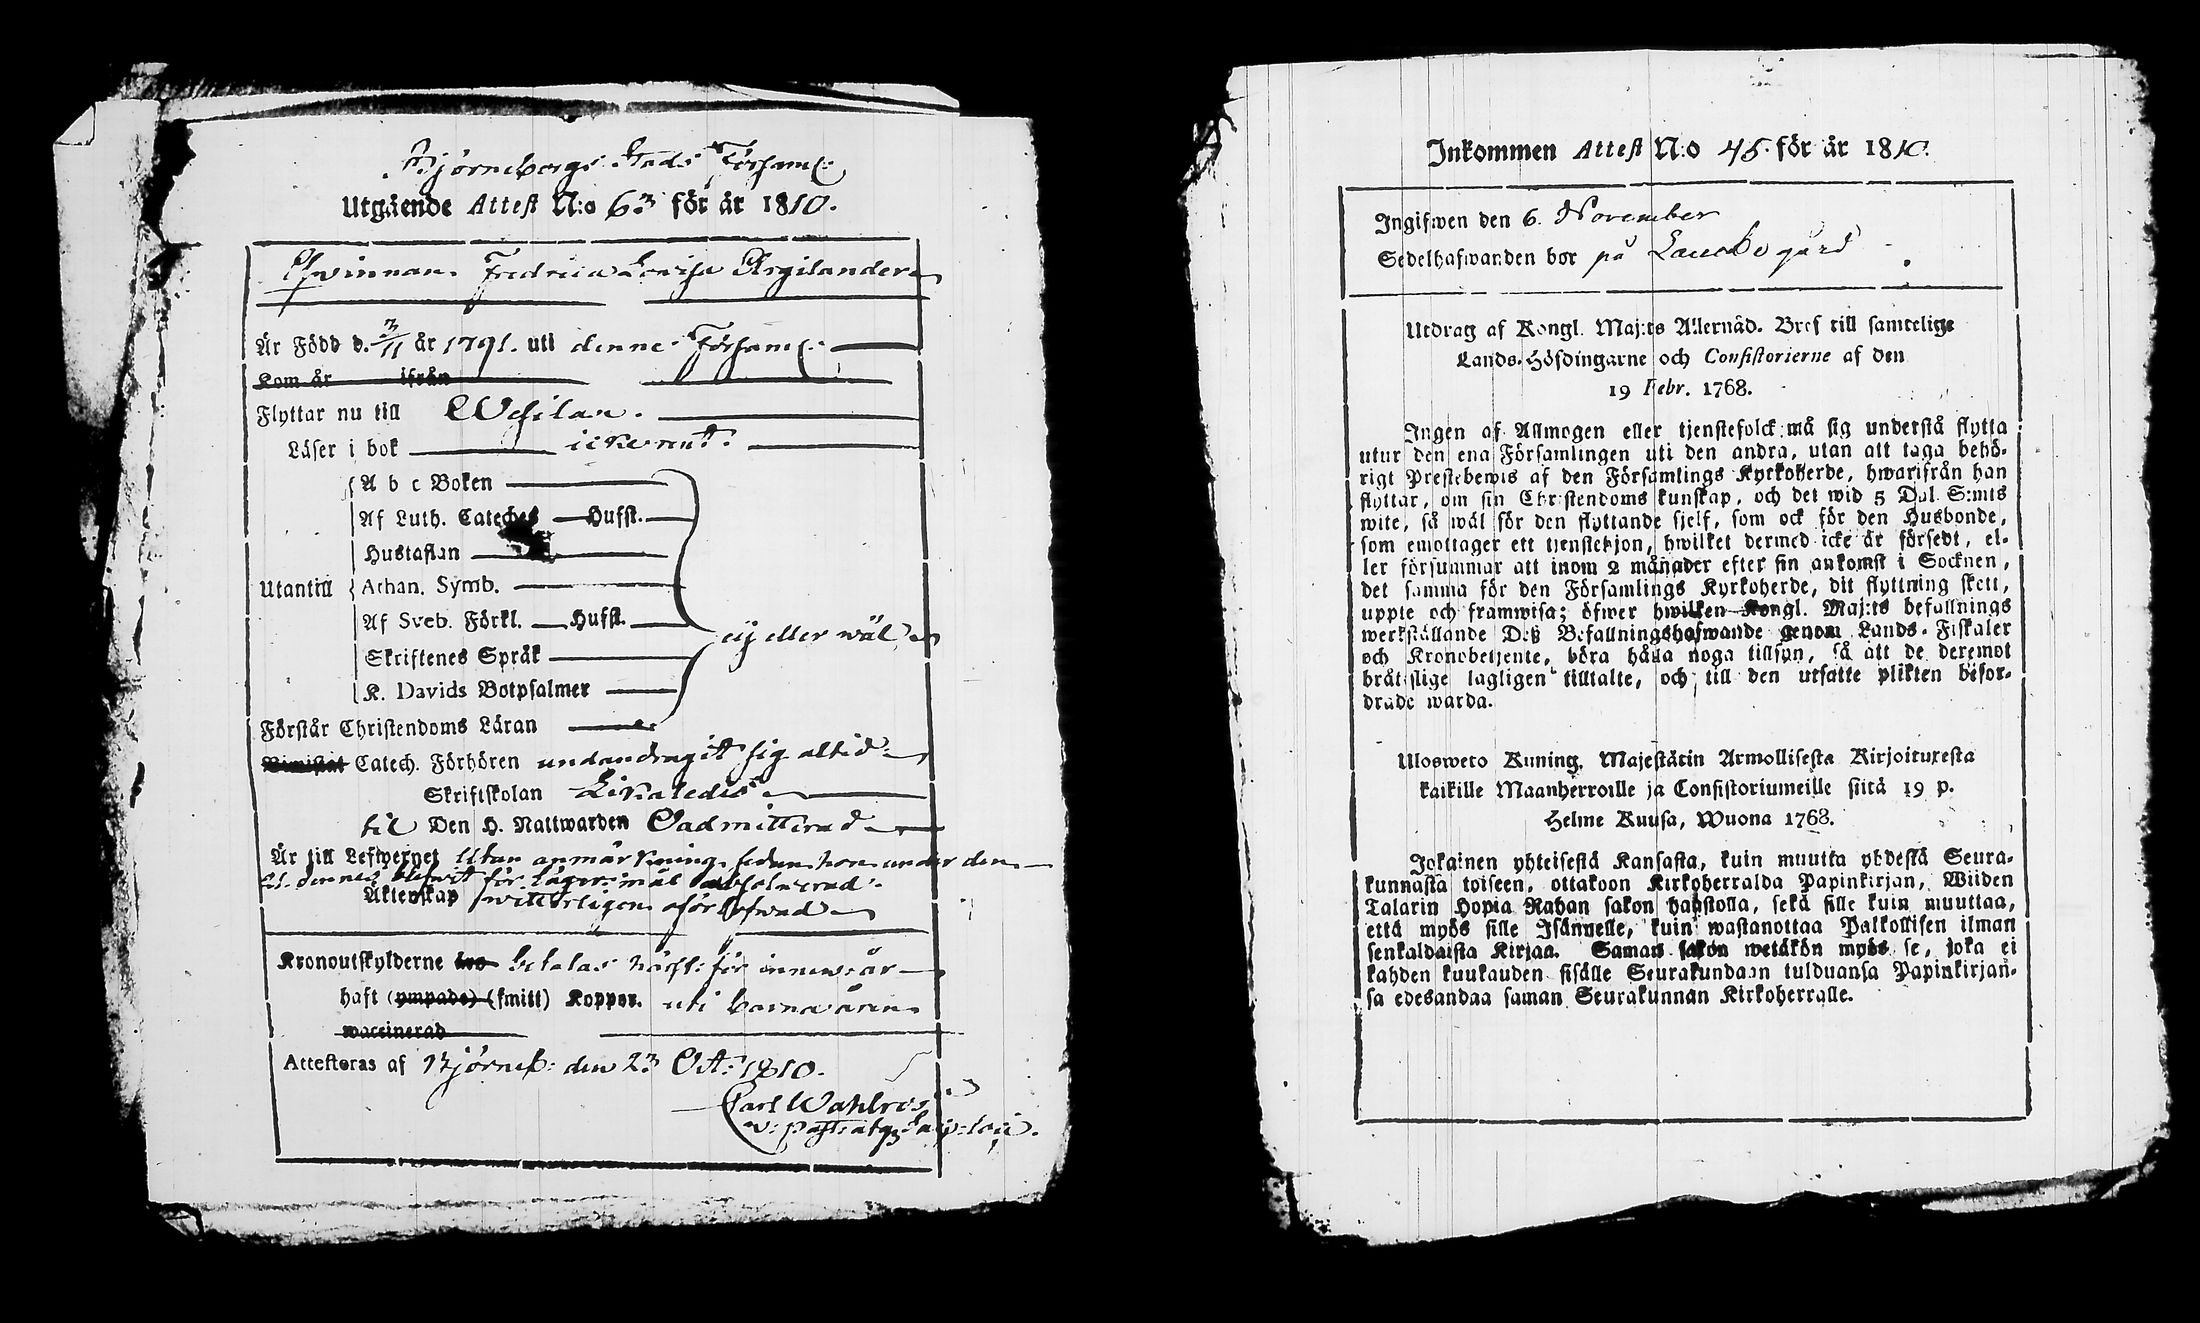 Björneborgs Stads Församl:
Utgående Attest N:o 63 för år 1810.
Qwinnan Fredrica Lovisa Argilander
Är Född d. 3/11 år 1791. uti denne Församl:
Kom år ifrån
Flyttar nu till
Läser i bok
A b c Boken
Af Luth. Cateches Hufst.
Hustaflan
Utantill Athan. Symb.
Af Sveb. Förkl. Hufst.
eij eller wäl
Skriftenes Språk
K. Davids Botpsalmer
Förstår Christendoms Läran
Bimistat Catech. Förhören undandragit sig altid
Skriftskolan Likaledes
til Den H. Nattwarden Oadmitterad
Är till Lefwernet utan anmärkning, sedan hon under den
för lägersmål absolverad.
Äktenskap witterligen oförlofwad
Kronoutskylderne äro betalas härst: för innew: år
haft (ympade) (smitt) Koppor. uti barna åren
waccinerad
Attesteras af Björneb: den 23 Oct: 1810.
Carl Wahlroos
v: pastor
Inkommen Attest N:o 45. för år 1810.
Ingifwen den 6. November
Sedelhafwanden bor på gård
Utdrag af Kongl. Maj:ts Allernåd. Bref till samtelige
Lands-Höfdingarne och Consistorierne af den
19 Febr. 1768.
Ingen af Allmogen eller tjenstefolck må sig understå flytta
utur den ena Församlingen uti den andra, utan att taga behö-
rigt Prestebewis af den Församlings Kyrkoherde, hwarifrån han
flyttar, om sin Christendoms kunskap, och det wid 5 Dal. S:mts
wite, så wäl för den flyttande sjelf, som ock för den Husbonde,
som emottager ett tjenstehjon, hwilket dermed icke är försedt, el-
ler försummar att inom 2 månader efter sin ankomst i Socknen,
det samma för den Församlings Kyrkoherde, dit flyttning skett,
uppte och framwisa; öfwer hwilken Kongl. Maj:ts befallnings
werkställande Deß Befallningshafwande genom Lands-Fiskaler
och Kronobetjente, böra hålla noga tillsyn, så att de deremot
bråtslige lagligen tilltalte, och till den utsatte plikten befor-
drade warda.
Ulosweto Kuning. Majestätin Armollisesta Kirjoituxesta
kaikille Maanherroille ja Consistoriumeille siitä 19 p.
Helme Kuusa, Wuona 1768.
Jokainen yhteisestä Kansasta, kuin muutta yhdestä Seura-
kunnasta toiseen, ottakoon Kirkoherralda Papinkirjan, Wiiden
Talarin Hopia Rahan sakon haastolla, sekä sille kuin muuttaa,
että myös sille Isännelle, kuin wastanottaa Palkollisen ilman
senkaldaista Kirjaa. Saman sakon wetäkön myös se, joka ei
kahden kuukauden sisälle Seurakundaan tulduansa Papinkirjan-
sa edesandaa saman Seurakunnan Kirkoherralle.